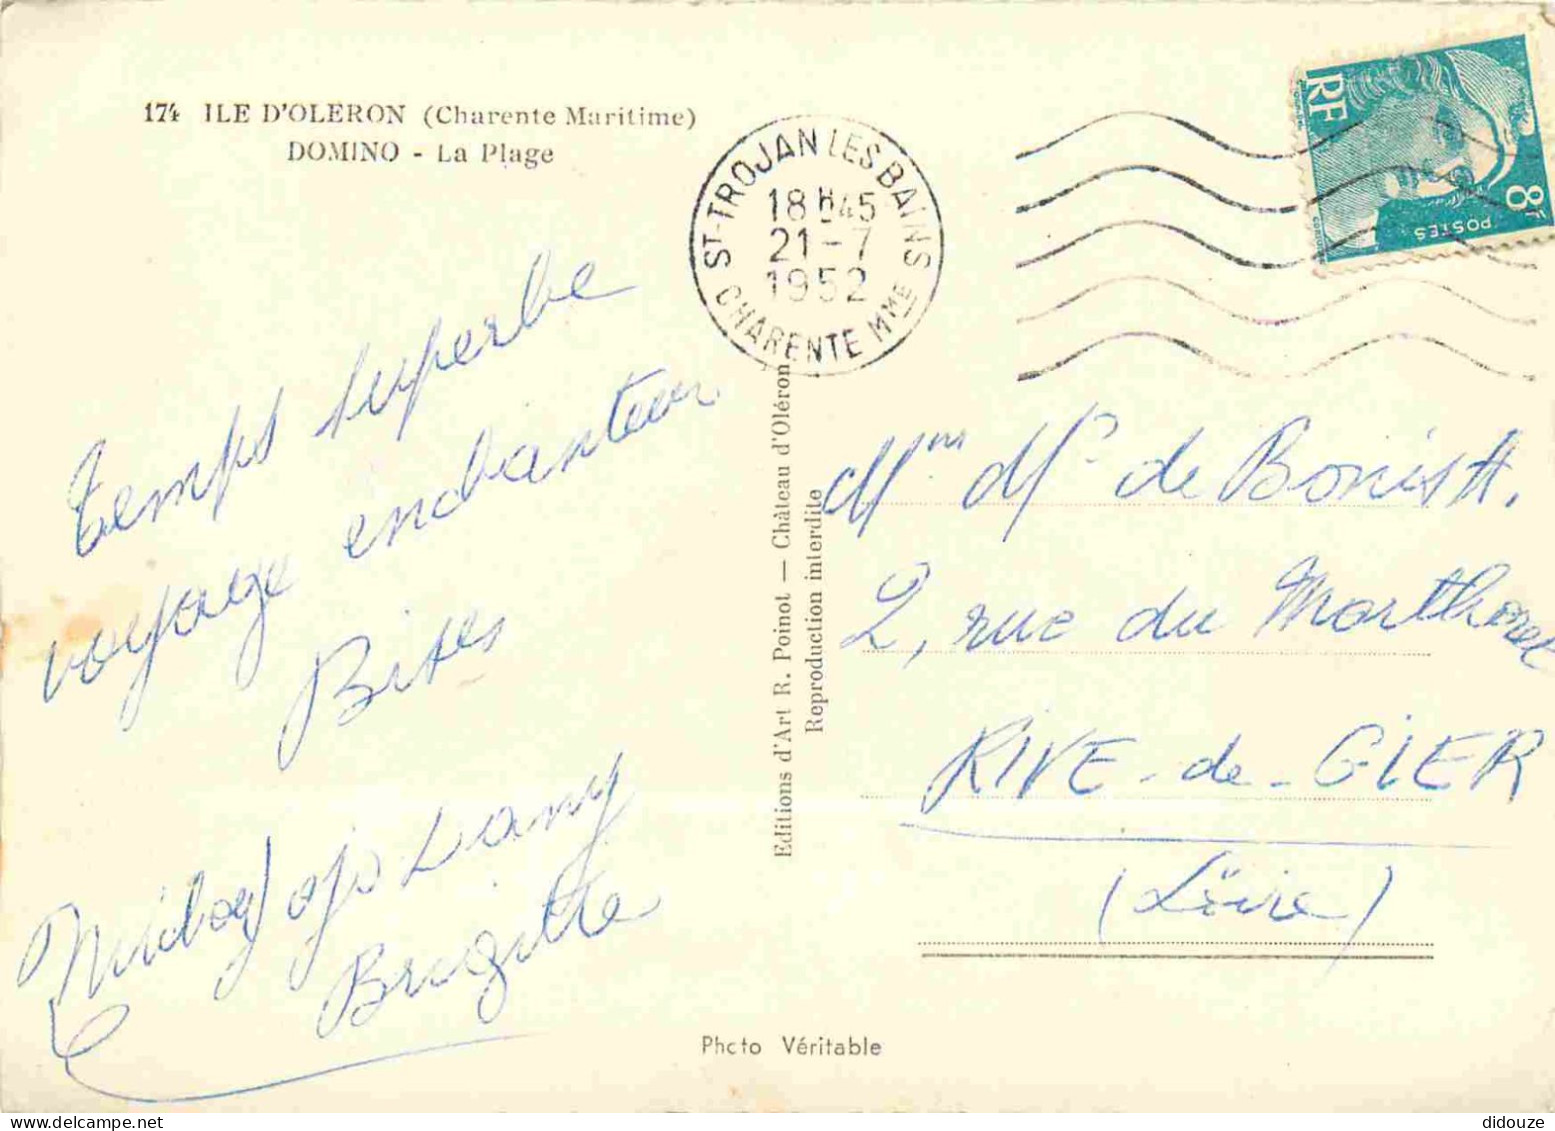 174 ILE D'OLERON (Charente Maritime)
DOMINO - La Plage
ST-TROJAN LES BAINS
18H45
21-7
1952
CHARENTE MME
RF
8F
POSTES
temps superbe
voyage enchanteur
Bises
Dany
Brigitte
Editions d'Art R. Poinot — Château d'Oléron
Reproduction interdite
de
2, rue du
RIVE-de-GIER
(Loire)
Phcto Véritable
didouze